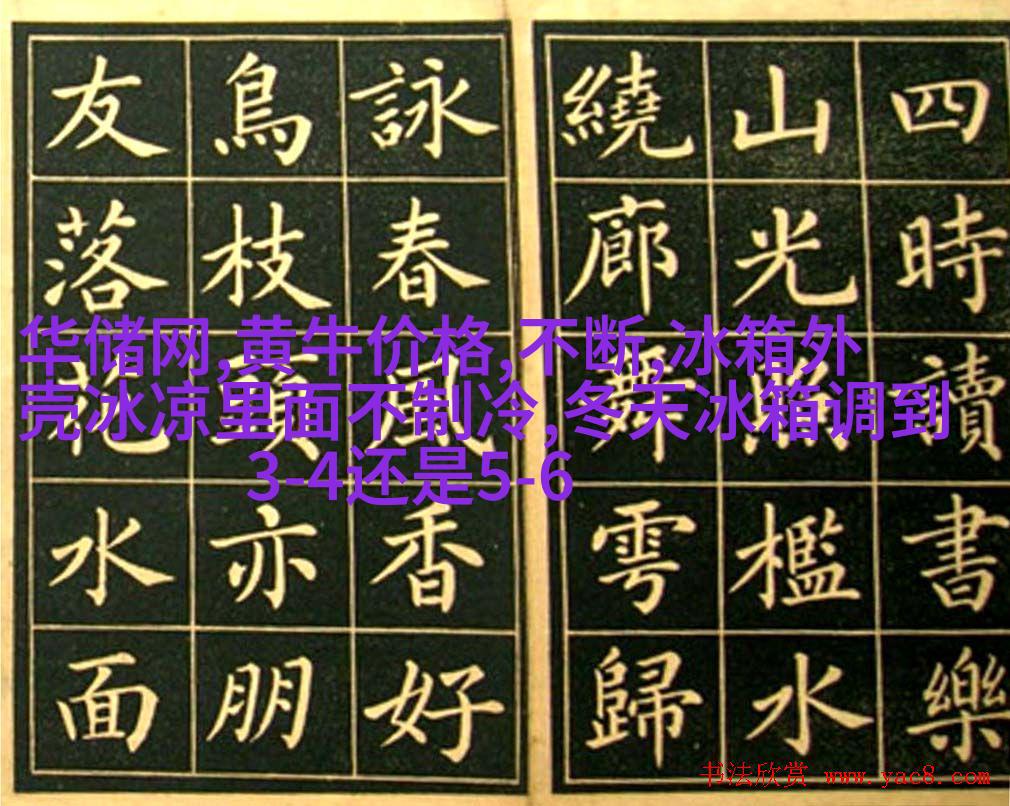 四時讀書樂
山光照檻水
繞廊舞雩歸
詠春風香好
鳥枝頭亦朋
友落花水面
华储网,黄牛价格,不断,冰箱外
壳冰凉里面不制冷,冬天冰箱调到
3-4还是5-6
书法欣赏 www.yac8.com